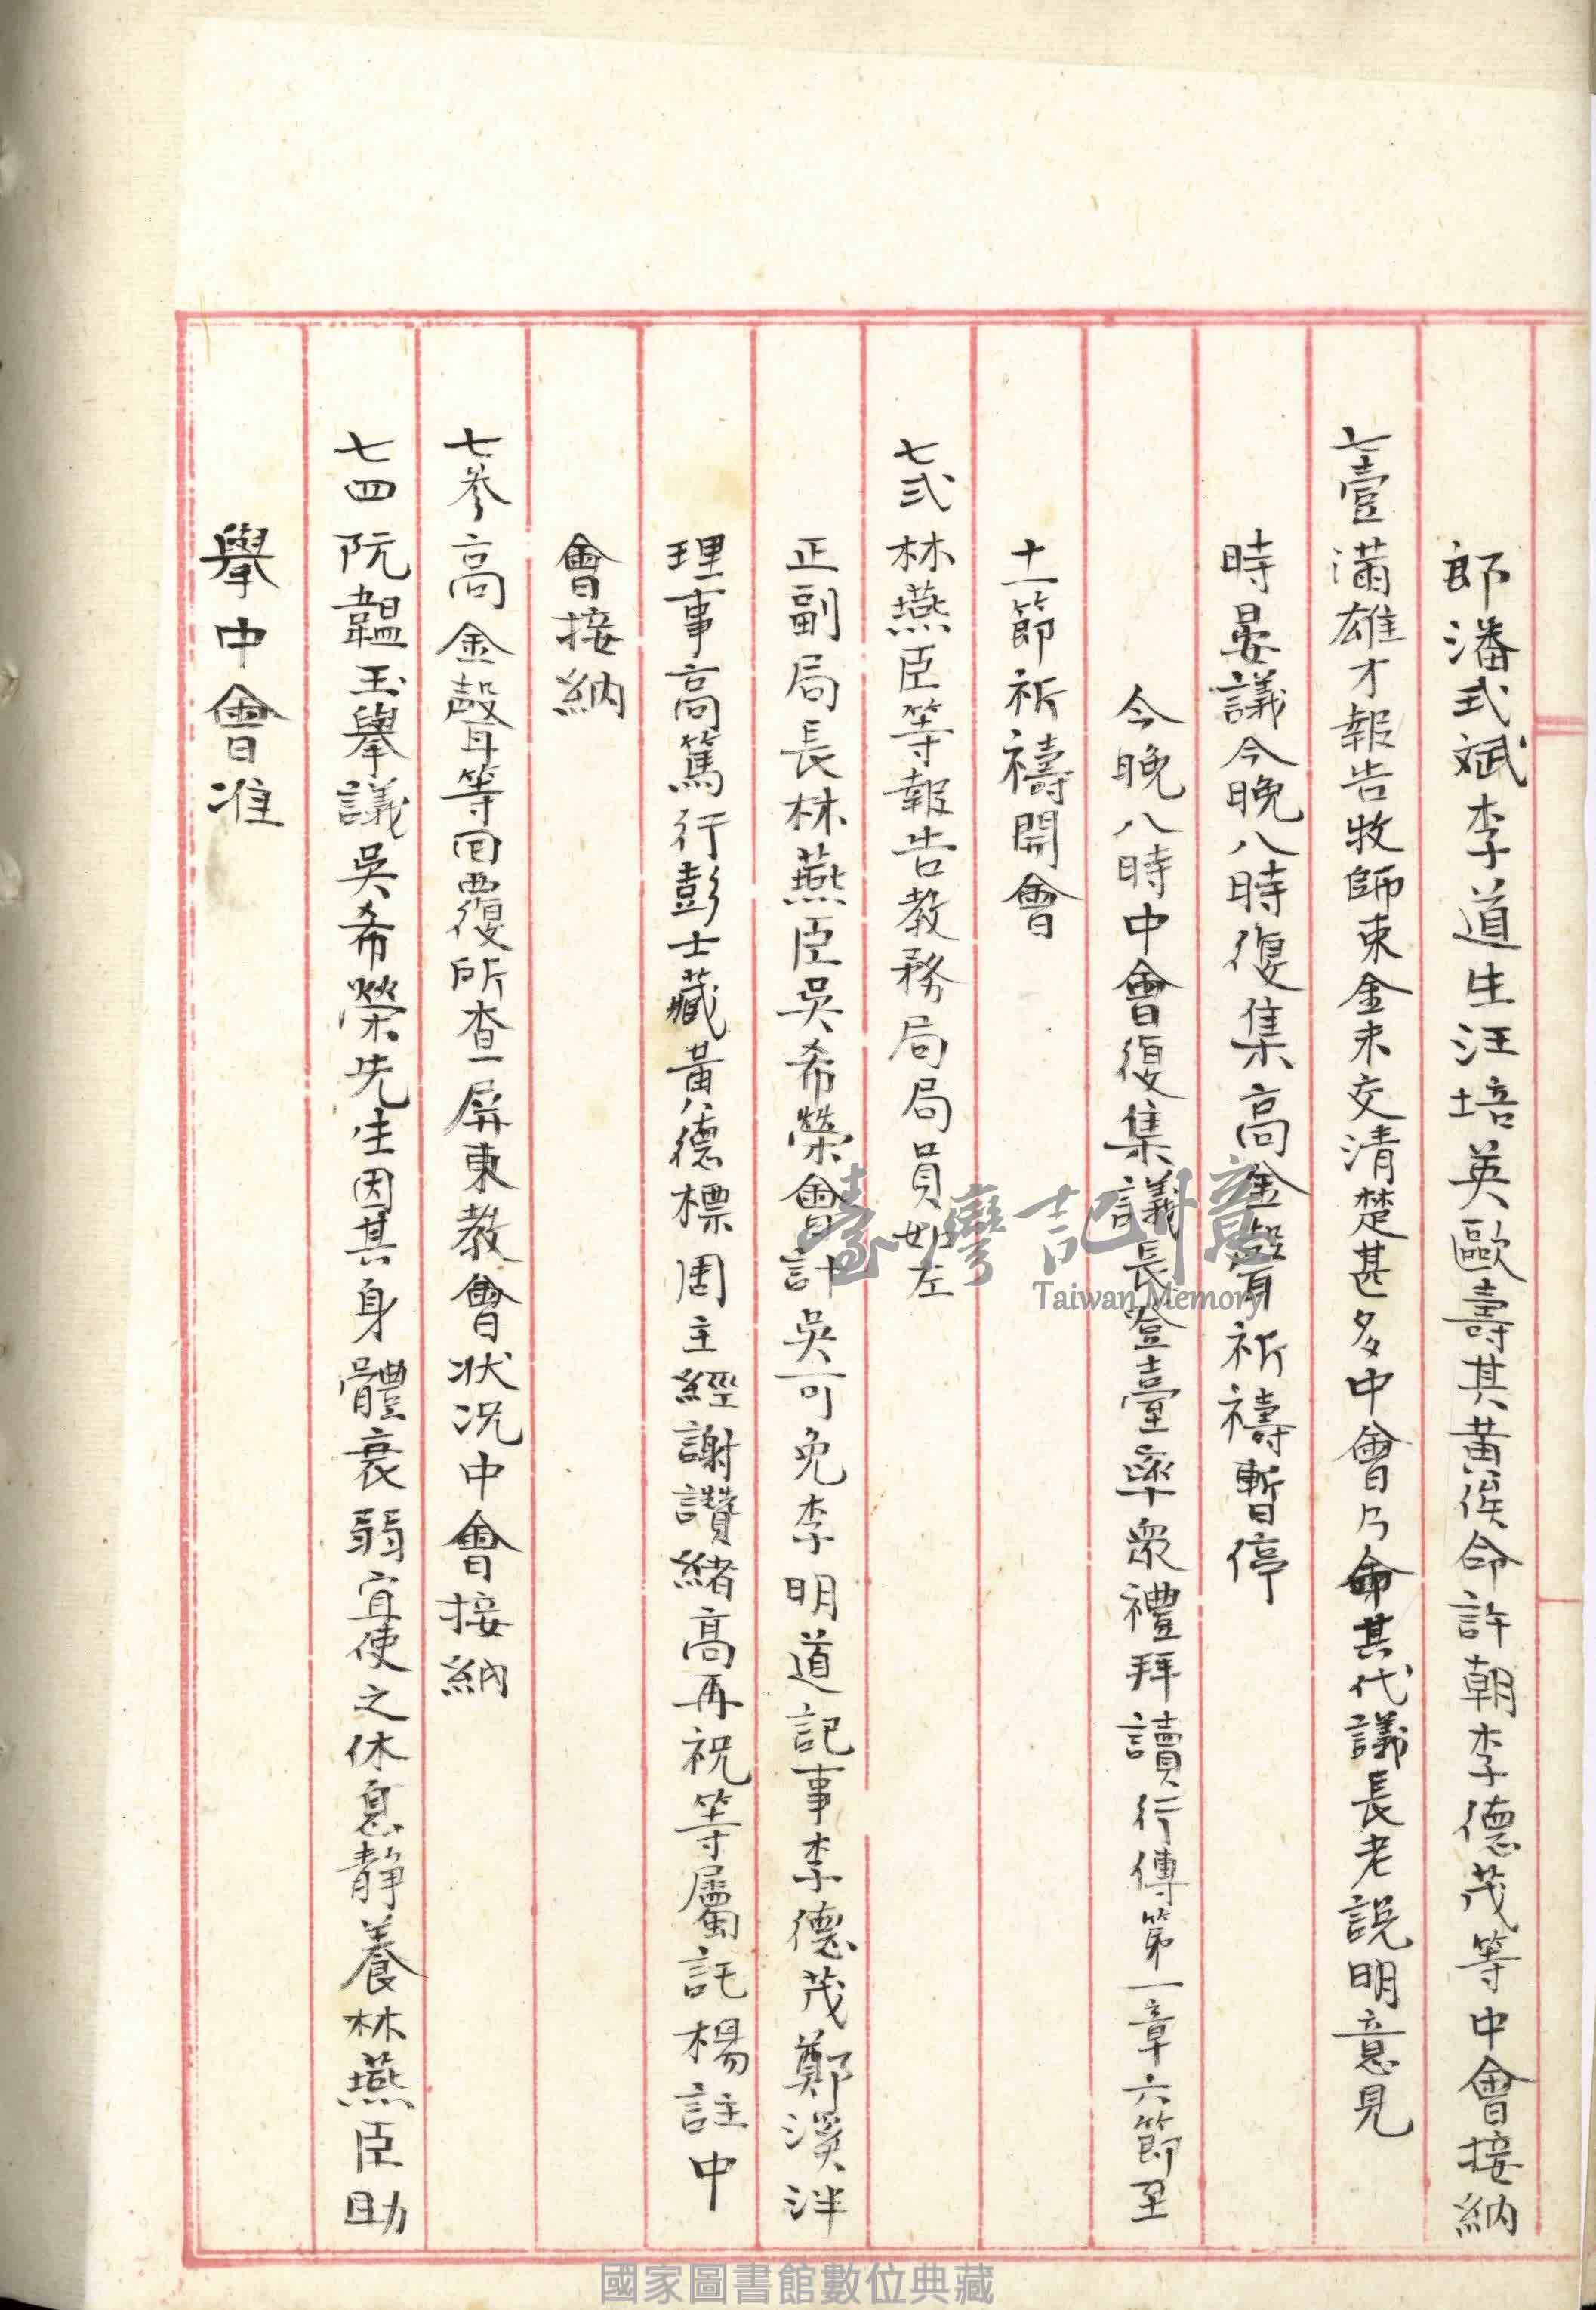 郎潘式斌李道生汪培英歐壽其黃俟命許朝李德茂等中會接納
七壹滿雄才報告牧師束金未交清楚甚多中會乃命其代議長老說明意見
時晏議今晚八時復集高金聲祈禱暫停
今晚八時中會復集議長登臺率眾禮拜讀行傳第一章六節至
十一節祈禱開會
七弍林燕臣等報告教務局局員如左
正副局長林燕臣吳希榮會計吳可免李明道記事李德茂鄭溪泮
理事高篤行彭士藏黃德標周主經謝讚緒高再祝等屬託楊註中
會接納
七參高金聲等回覆所查屏東教會狀況中會接納
七四阮韞玉舉議吳希榮先生因其身體衰弱宜使之休息靜養林燕臣助
舉中會准
臺灣記憶
Taiwan Memory
國家圖書館數位典藏